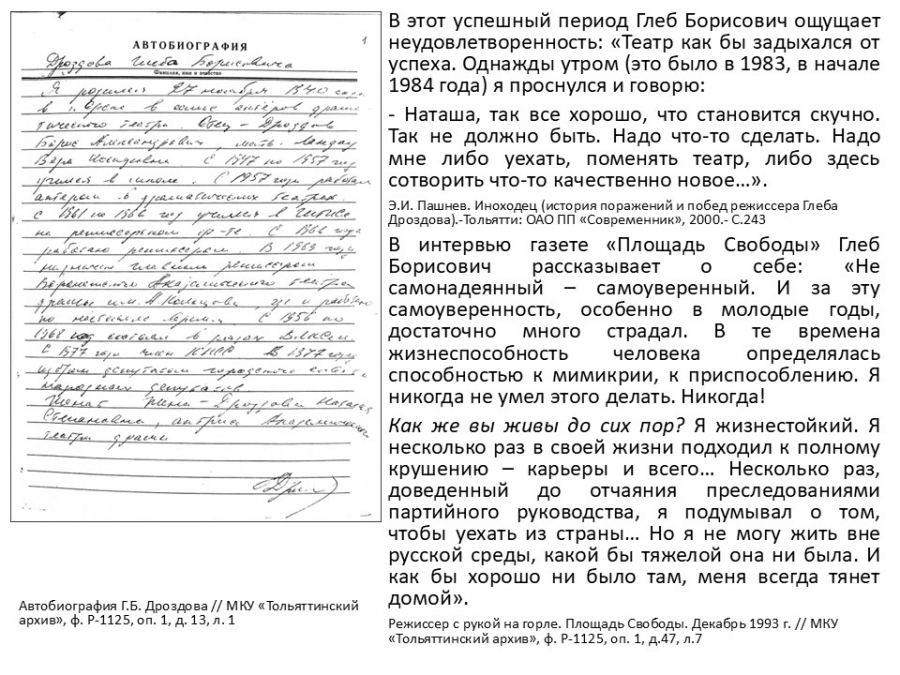 1
АВТОБИОГРАФИЯ
Дроздова Глеба Борисовича
Фамилия, имя и отчество
Я родился 27 ноября 1940 года
в г. Орске в семье актеров драма-
тического театра. Отец – Дроздов
Борис Александрович, мать
Вера Иосифовна С 1947 по 1957 год
учился в школе. С 1957 года работал
актером в драматических театрах.
с 1961 по 1966 год учился в Гитисе
на режиссерском ф-те. С 1966 года
работаю режиссером. В 1969 году
назначен главным режиссером
Воронежского Академического театра
драмы им. А Кольцова, где и работаю
по настоящее время. С 1956 по
1968 год состоял в рядах ВЛКСМ.
С 1977 года член КПСС В 1977 году
избран депутатом городского совета
народных депутатов
Женат Жена – Дроздова Наталья
Степановна, актриса Академического
театра драмы
Автобиография Г.Б. Дроздова // МКУ «Тольяттинский
архив», ф. Р-1125, оп. 1, д. 13, л. 1
В этот успешный период Глеб Борисович ощущает
неудовлетворенность: «Театр как бы задыхался от
успеха. Однажды утром (это было в 1983, в начале
1984 года) я проснулся и говорю:
- Наташа, так все хорошо, что становится скучно.
Так не должно быть. Надо что-то сделать. Надо
мне либо уехать, поменять театр, либо здесь
сотворить что-то качественно новое…».
Э.И. Пашнев. Иноходец (история поражений и побед режиссера Глеба
Дроздова).-Тольятти: ОАО ПП «Современник», 2000.- С.243
В интервью газете «Площадь Свободы» Глеб
Борисович рассказывает о себе: «Не
самонадеянный – самоуверенный. И за эту
самоуверенность, особенно в молодые годы,
достаточно много страдал. В те времена
жизнеспособность человека определялась
способностью к мимикрии, к приспособлению. Я
никогда не умел этого делать. Никогда!
Как же вы живы до сих пор? Я жизнестойкий. Я
несколько раз в своей жизни подходил к полному
крушению – карьеры и всего… Несколько раз,
доведенный до отчаяния преследованиями
партийного руководства, я подумывал о том,
чтобы уехать из страны… Но я не могу жить вне
русской среды, какой бы тяжелой она ни была. И
как бы хорошо ни было там, меня всегда тянет
домой».
Режиссер с рукой на горле. Площадь Свободы. Декабрь 1993 г. // МКУ
«Тольяттинский архив», ф. Р-1125, оп. 1, д.47, л.7